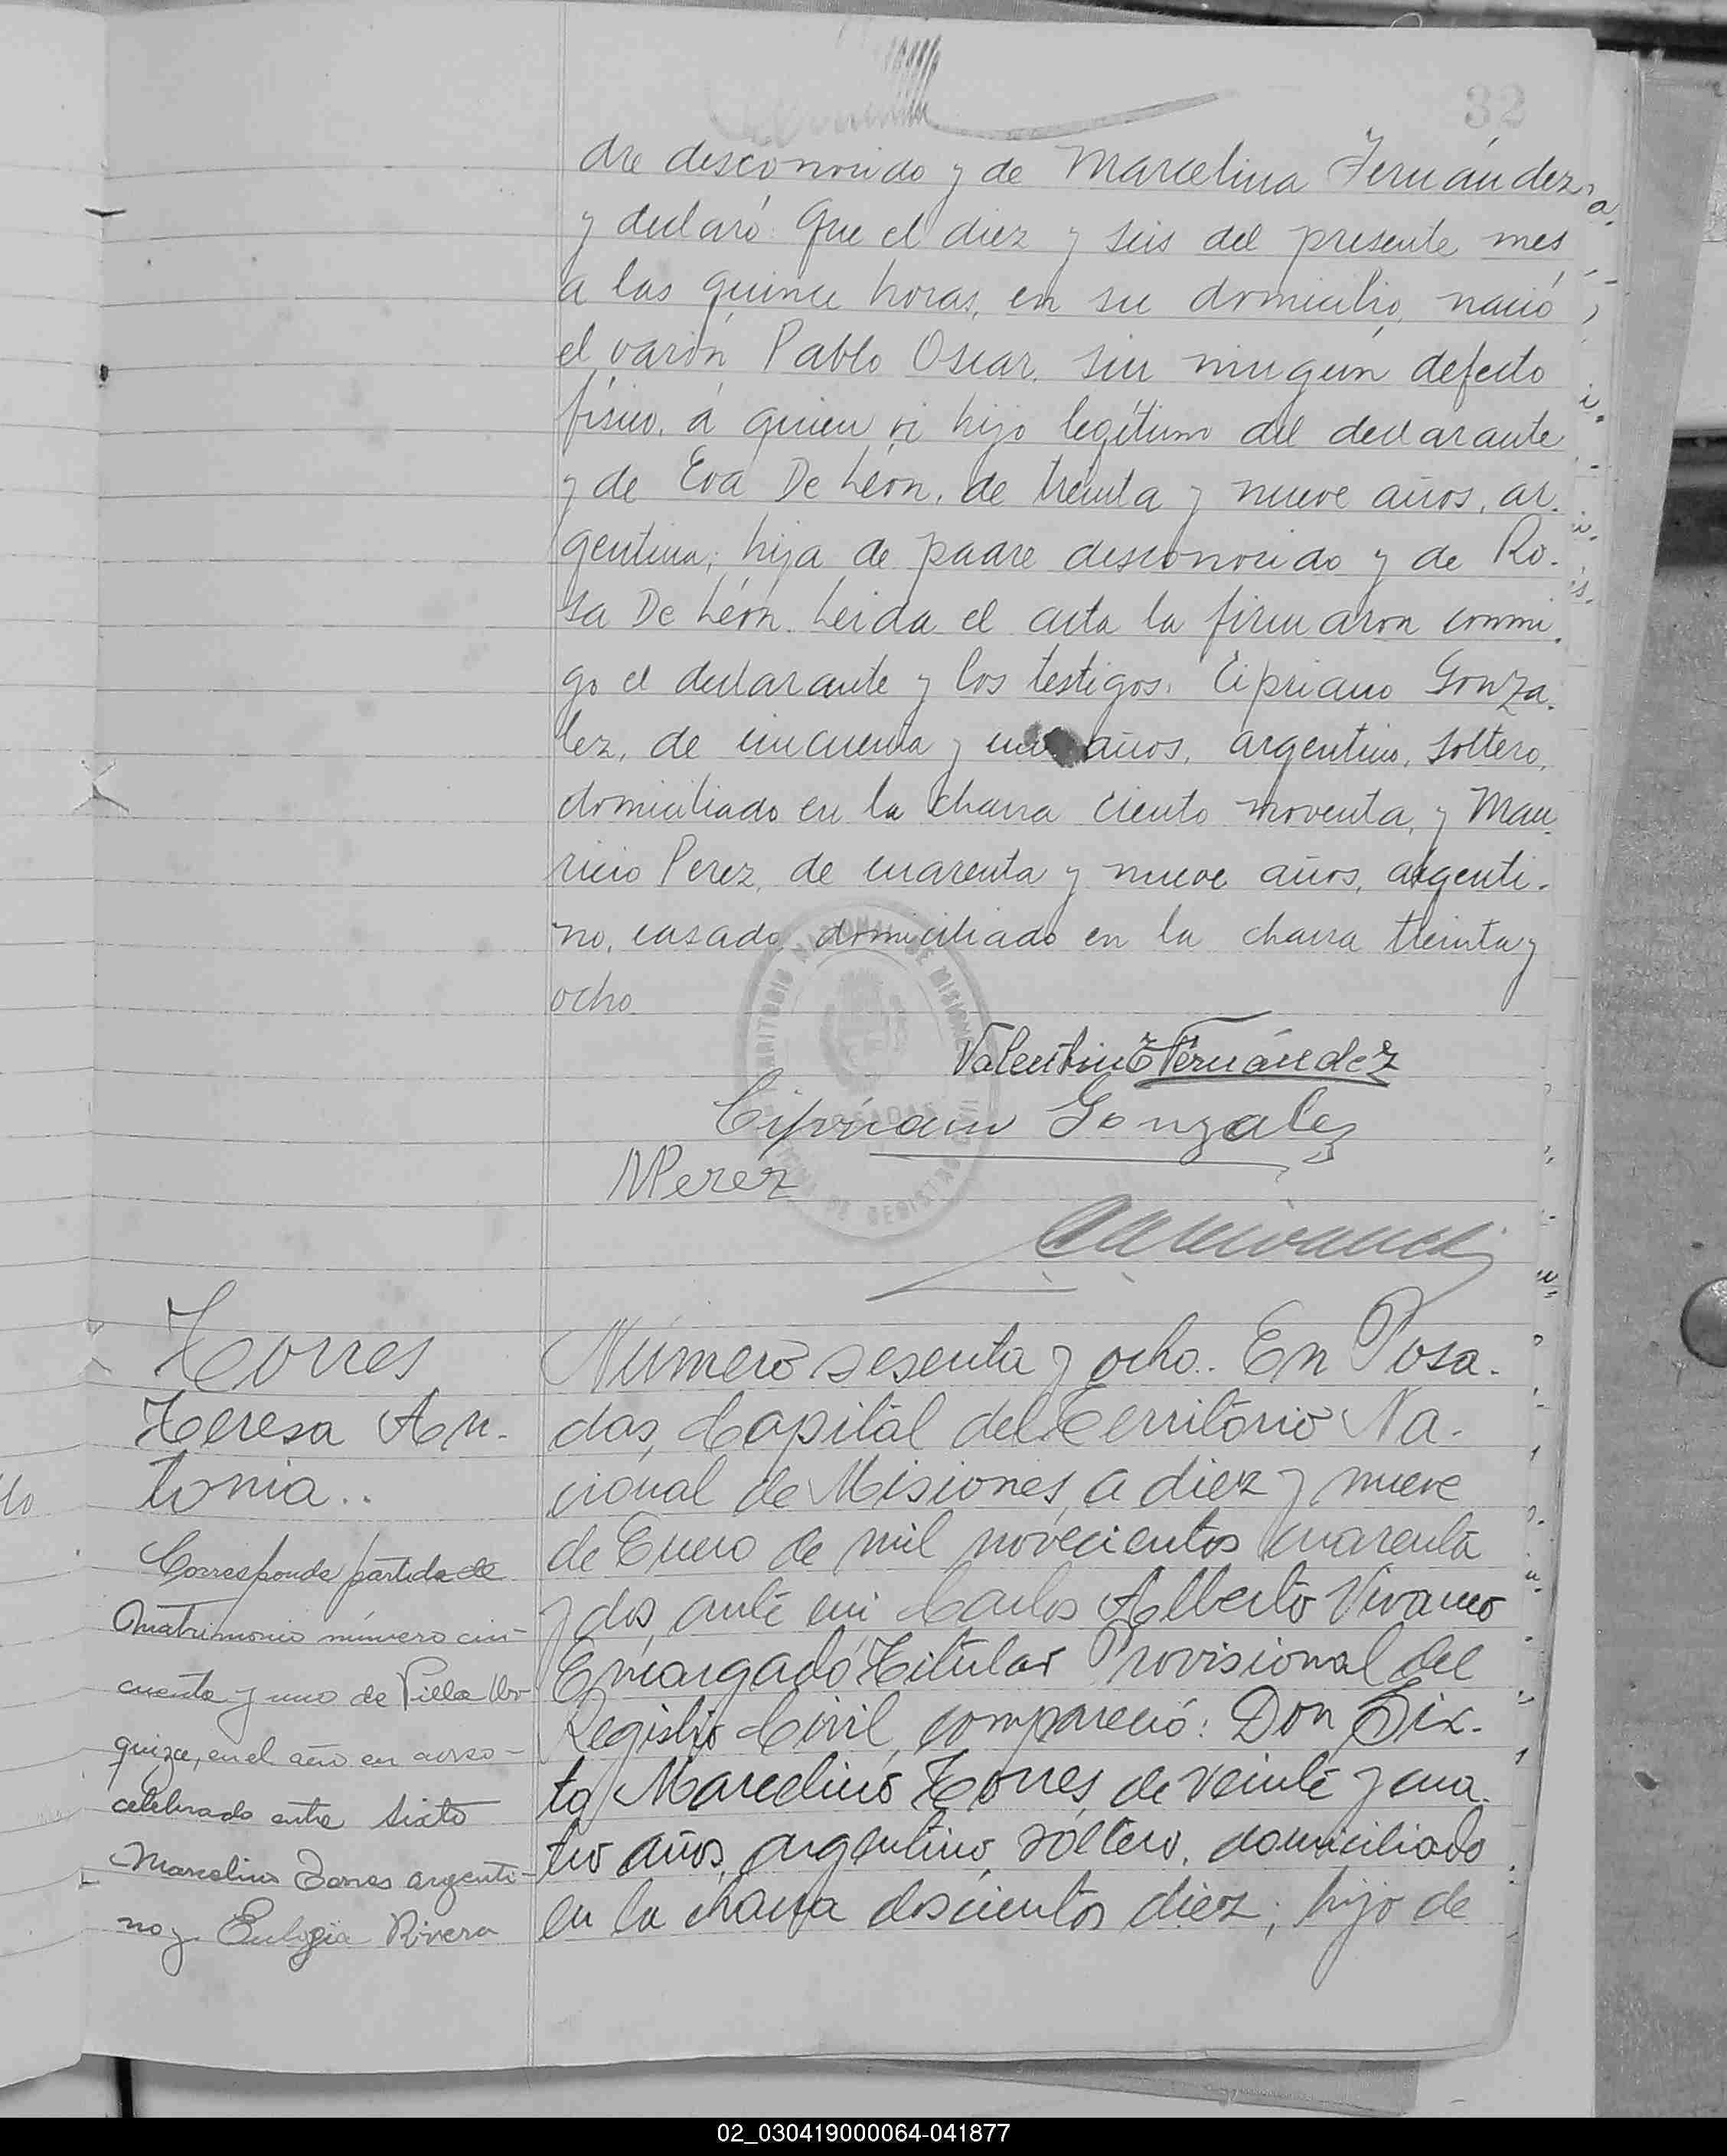 32
dre desconocido y de Marcelina Fernández,
y declaró: Que el diez y seis del presente mes
a las quince horas, en su domicilio, nació
el varón Pablo Oscar, sin ningún defecto
físico, á quien vi hijo legítimo del declarante
y de Eva De León, de treinta y nueve años, ar-
gentina; hija de padre desconocido y de Ro-
sa De León. Leida el acta la firmaron conmi-
go el declarante y los testigos: Cipriano Gonza-
lez, de cincuenta y un años, argentino, soltero,
domiciliado en la chacra ciento noventa, y Mau-
ricio Perez, de cuarenta y nueve años, argenti-
no, casado, domiciliado en la chacra treinta y
ocho
Valentin Fernández
Cipriano Gonzalez
MPerez
TERRITORIO NACIONAL DE MISIONES
POSADAS
Torres
Teresa An-
tonia..
Corresponde partida de
Matrimonio número cin-
cuenta y uno de Villa Ur-
quiza, en el año en curso-
celebrado entre Sixto
Marcelino Torres argenti-
no y Eulogia Rivera
Número sesenta y ocho. En Posa-
das, Capital del Territorio Na-
cional de Misiones, a diez y nueve
de Enero de mil novecientos cuarenta
y dos, ante mi Carlos Alberto Vivanco
Encargado Titular Provisional del
Registro Civil, compareció: Don Six-
to Marcelino Torres, de veinte y cua-
tro años, argentino, soltero, domiciliado
en la chacra doscientos diez; hijo de
02_030419000064-041877